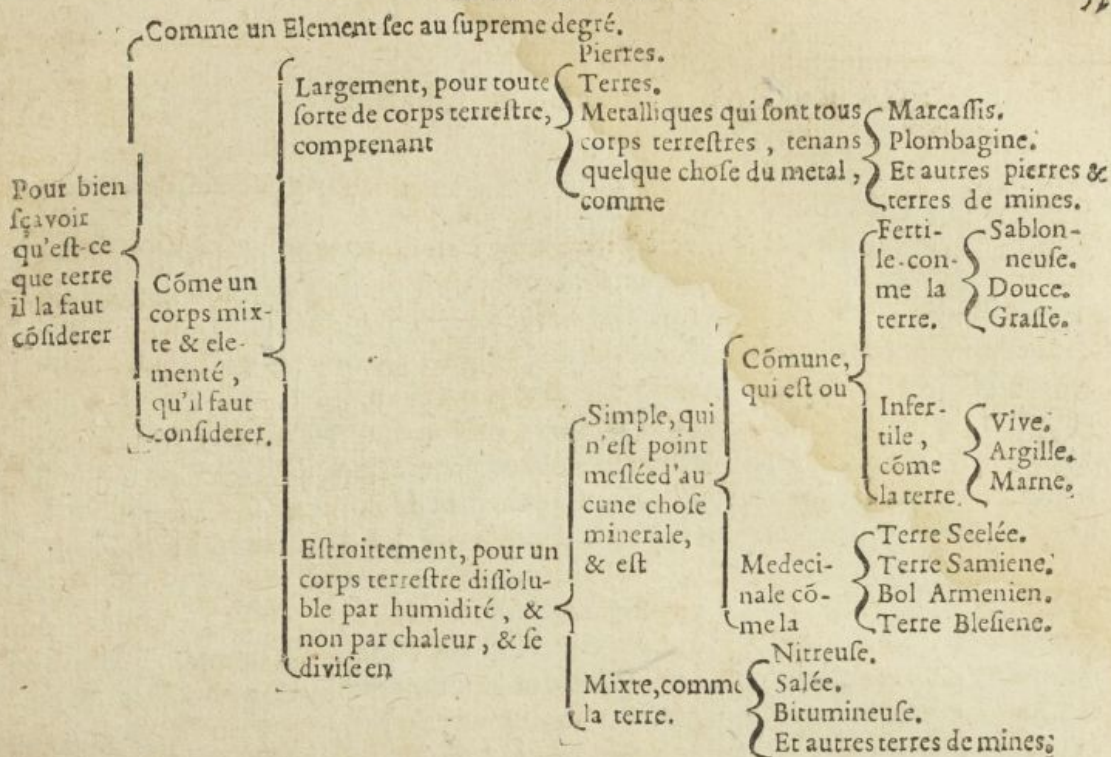 Comme un Element ſec au ſupreme degré.
Pour bien
ſçavoir
qu'eſt-ce
que terre
il la faut
cõſiderer
Cõme un
corps mix-
te & ele-
menté,
qu'il faut
conſiderer.
Largement, pour toute
ſorte de corps terreſtre,
comprenant
Pierres.
Terres.
Metalliques qui ſont tous
corps terreſtres, tenans
quelque choſe du metal,
comme
Marcaſſis.
Plombagine.
Et autres pierres &
terres de mines.
Eſtroittement, pour un
corps terreſtre diſſolu-
ble par humidité, &
non par chaleur, & ſe
diviſe en
Simple, qui
n'eſt point
meſléed'au
cune choſe
minerale,
& eſt
Cõmune,
qui eſt ou
Ferti-
le-con-
me la
terre.
Sablon-
neuſe.
Douce.
Graſſe.
Infer-
tile,
cõme
la terre.
Vive.
Argille.
Marne.
Medeci-
nale cõ-
me la
Terre Seelée.
Terre Samiene.
Bol Armenien.
Terre Bleſiene.
Mixte, comme
la terre.
Nitreuſe.
Salée.
Bitumineuſe.
Et autres terres de mines.